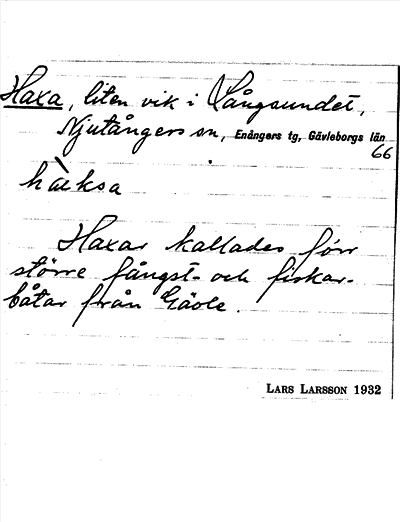 Haxa, liten vik i Långsundet,
Njutångers sn, Enångers tg, Gävleborgs län
66
hàksa
Haxar kallades förr
större fångst- och fiskar-
båtar från Gävle.
LARS LARSSON 1932